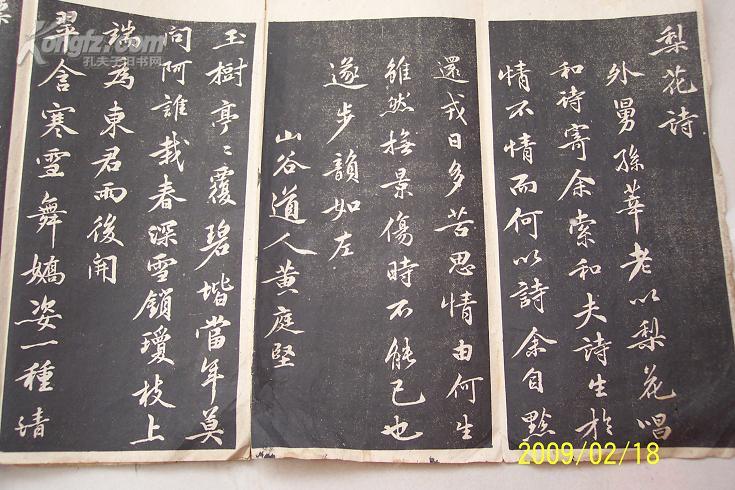 梨花詩
外舅孫莘老以梨花唱
和詩寄余索和夫詩生於
情不情而何以詩余自黔
還戎日多苦思情由何生
雖然撫景傷時不能已也
遂步韻如左
山谷道人黃庭堅
玉樹亭〻覆碧堦當年莫
问阿誰栽春深雪鎖瓊枝上
端為東君雨後開
翠含寒雪舞嬌姿一種情
Kongfz.com
孔夫子旧书网
2009/02/18